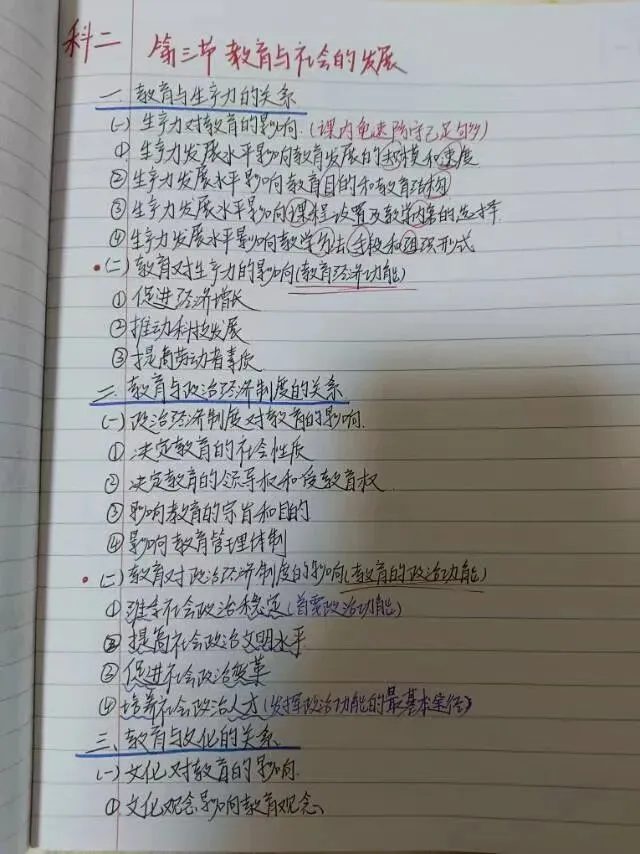 科二 第三节 教育与社会的发展
一、教育与生产力的关系
(一)生产力对教育的影响.(课内龟速 附送乙足句多)
①生产力发展水平影响教育发展的规模和速度
②生产力发展水平影响教育目的和教育结构
③生产力发展水平影响课程设置及教学内容的选择
④生产力发展水平影响教学方法手段和组织形式
(二)教育对生产力的影响(教育经济功能)
①促进经济增长
②推动科技发展
③提高劳动者素质
二、教育与政治经济制度的关系
(一)政治经济制度对教育的影响.
①决定教育的社会性质
②决定教育的领导权和受教育权
③影响教育的宗旨和目的
④影响教育管理体制
(二)教育对政治经济制度的影响(教育的政治功能)
①维系社会政治稳定(首要政治功能)
②提高社会政治文明水平
③促进社会政治变革
④培养社会政治人才(发挥政治功能的最基本途径)
三、教育与文化的关系
(一)文化对教育的影响.
①文化观念影响教育观念、